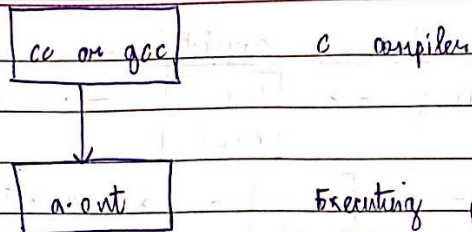 cc or gcc C compiler
a.out Executing